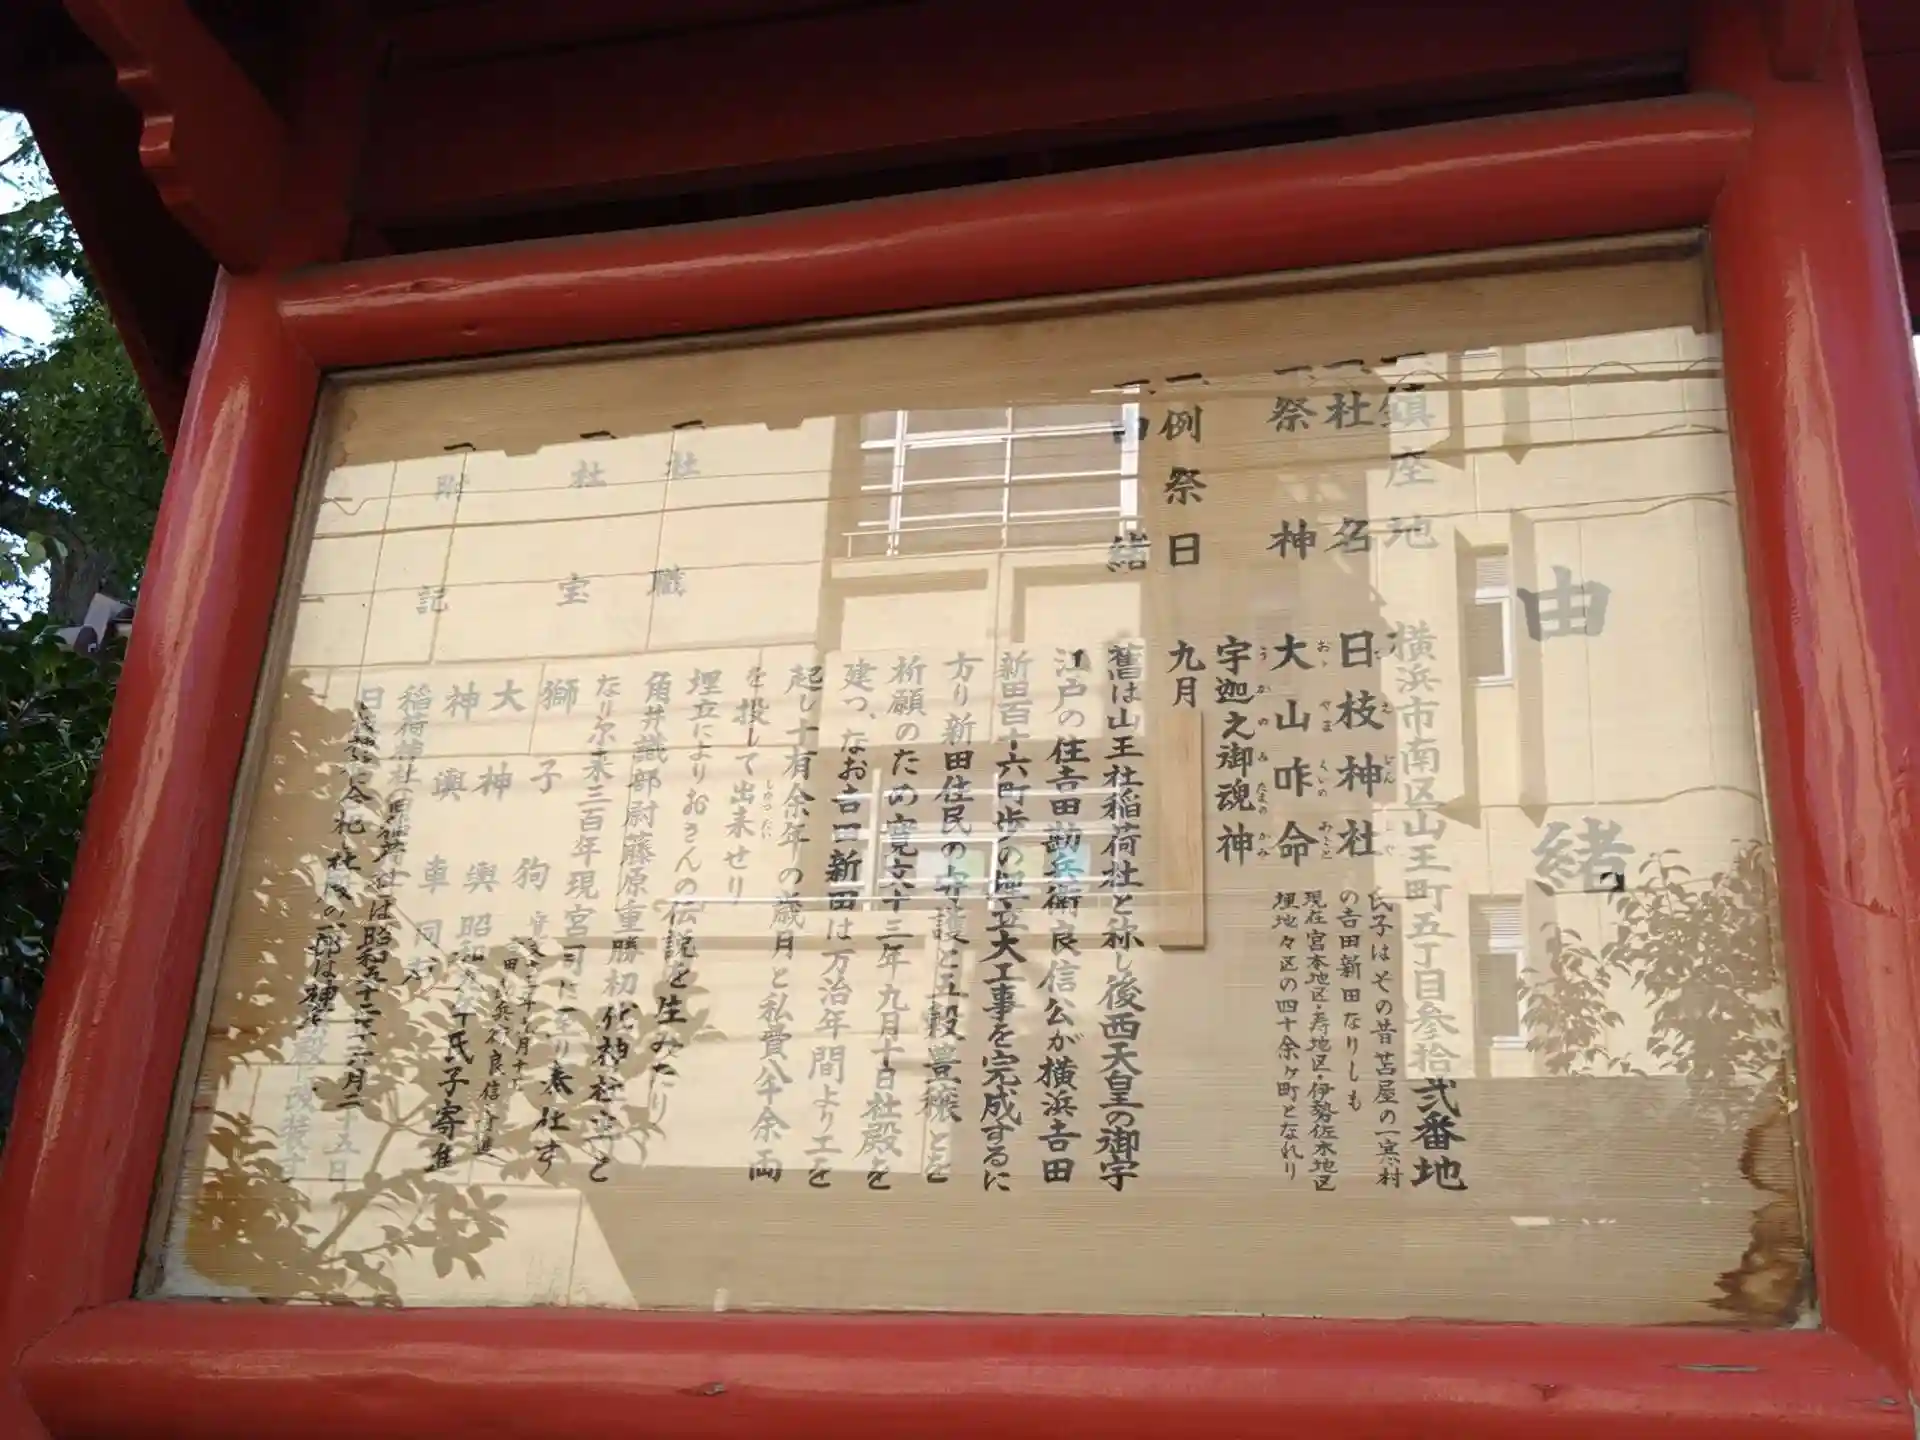 由緒
一、鎮座地 横浜市南区山王町五丁目参拾弐番地
一、社名 日枝神社
氏子はその昔苫屋の一寒村
の吉田新田なりしも
現在宮本地区・寿地区・伊勢佐木地区
埋地々区の四十余ヶ町となれり
一、祭神 大山咋命
おゝやまくいのみこと
宇迦之御魂神
うかのみたまのかみ
一、例祭日 九月
一、由緒 舊は山王社稲荷社と称し後西天皇の御宇
江戸の住吉田勘兵衛良信公が横浜吉田
新田百十六町歩の埋立大工事を完成するに
方り新田住民の守護と五穀豊穣とを
祈願のため寛文十三年九月十日社殿を
建つ、なお吉田新田は万治年間より工を
起し十有余年の歳月と私費八千余両
を投して出来せり
埋立によりおさんの伝説を生みたり
一、社職 角井識部尉藤原重勝初代神社守と
なり尓来三百年現宮司に至り奉仕す
一、社宝 獅子狗
大神輿 昭和 年氏子寄進
神輿車 同
一、附記 稲荷神社
日枝神社 合祀し社殿の一部は神輿殿に改装す